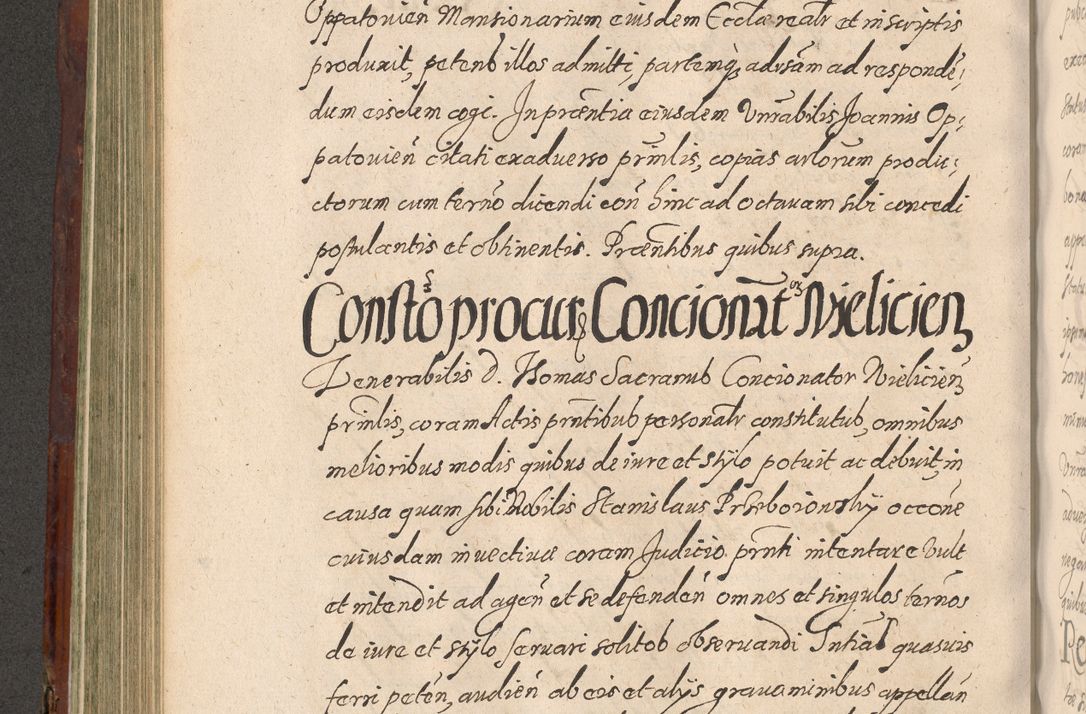 Oppatovień Mansionarium eiusdem Ecclæ realr et in scriptis
produxit, petens illos admitti, partemq adrsam ad responde͂,
dum eisdem cogi. In præntia eiusdem Vnrabilis Joannis Op,
patovień citati ex adverso prnlis, copias arlorum produ,
ctorum cum terño dicendi coñ hinc ad octavam sibi concedi
postulantis et obtinentis. Præntibus quibus supra.
Constõ procur Concionat Wielicien
Venerabilis D. Thomas Sacranus Concionator Wielicień
prnlis, coram Actis prntibus personalr constitutus, omnibus
melioribus modis quibus de iure et stylo potuit ac debuit, in
causa quam sibi Nobilis Stanislaus Przeboiowskÿ occõne
cuiusdam invectivæ coram Judicio prnti intentare vult
et intendit ad ageń et se defendeń omnes et singulos terños
de iure et stylo servari solitos observandi Sntias quasvis
ferri peteń, audień ab eis et alÿs gravaminibus appellań